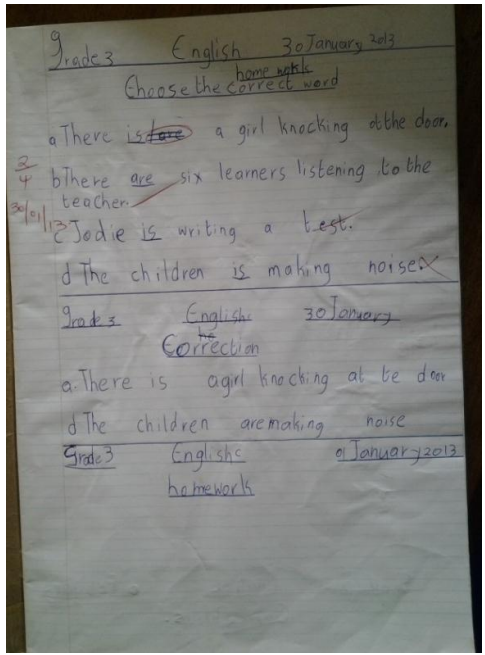 Grade 3 English 30 January 2013
home work
Choose the correct word
a There is are a girl knocking at the door.
2/4
b There are six learners listening to the
teacher.
30/01/13
c Jodie is writing a test.
d The children is making noise.
Grade 3 English 30 January
Correction
a. There is a girl knocking at te door
d The children are making noise
Grade 3 English 01 January 2013
homework